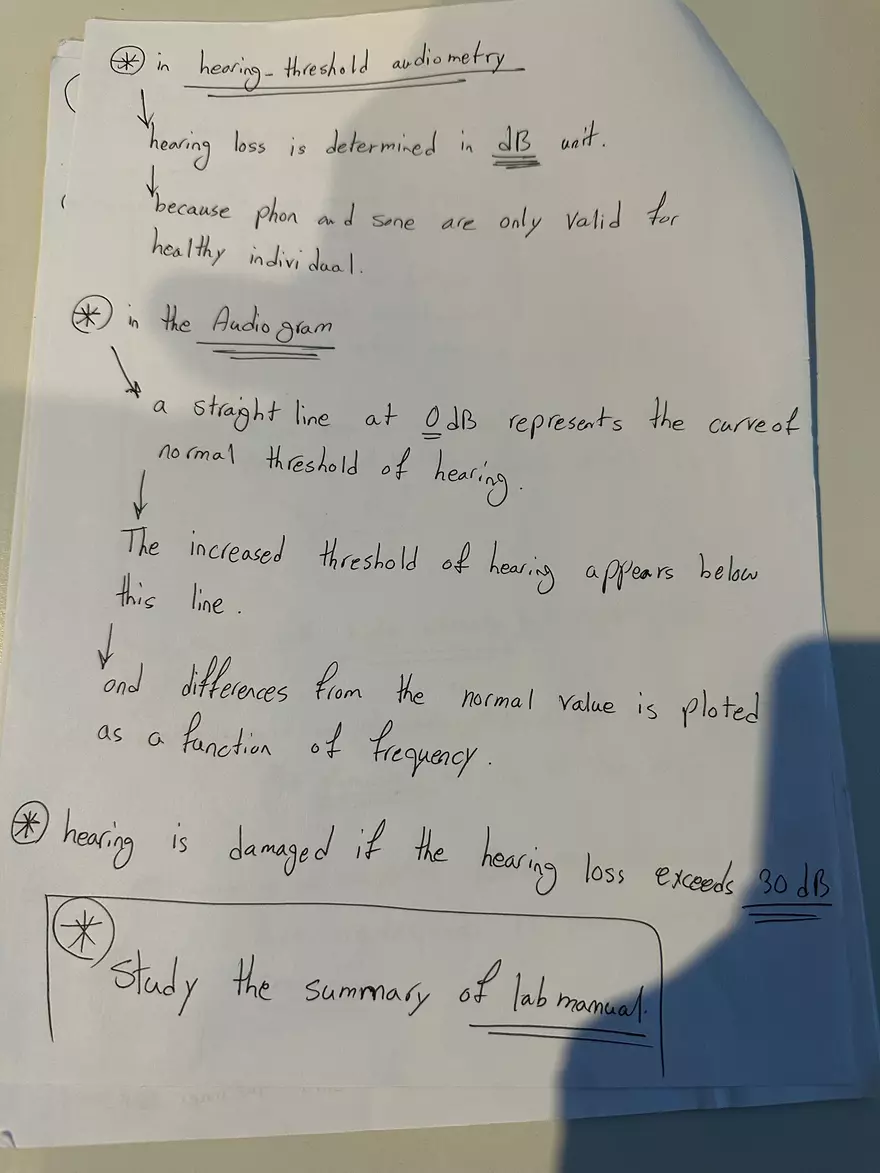 * in hearing-threshold audiometry
hearing loss is determined in dB unit.
because phon and sone are only valid for
healthy individual.
* in the Audiogram
a straight line at 0 dB represents the curve of
normal threshold of hearing.
The increased threshold of hearing appears below
this line.
and differences from the normal value is ploted
as a function of frequency.
* hearing is damaged if the hearing loss exceeds 30 dB
* Study the summary of lab manual.